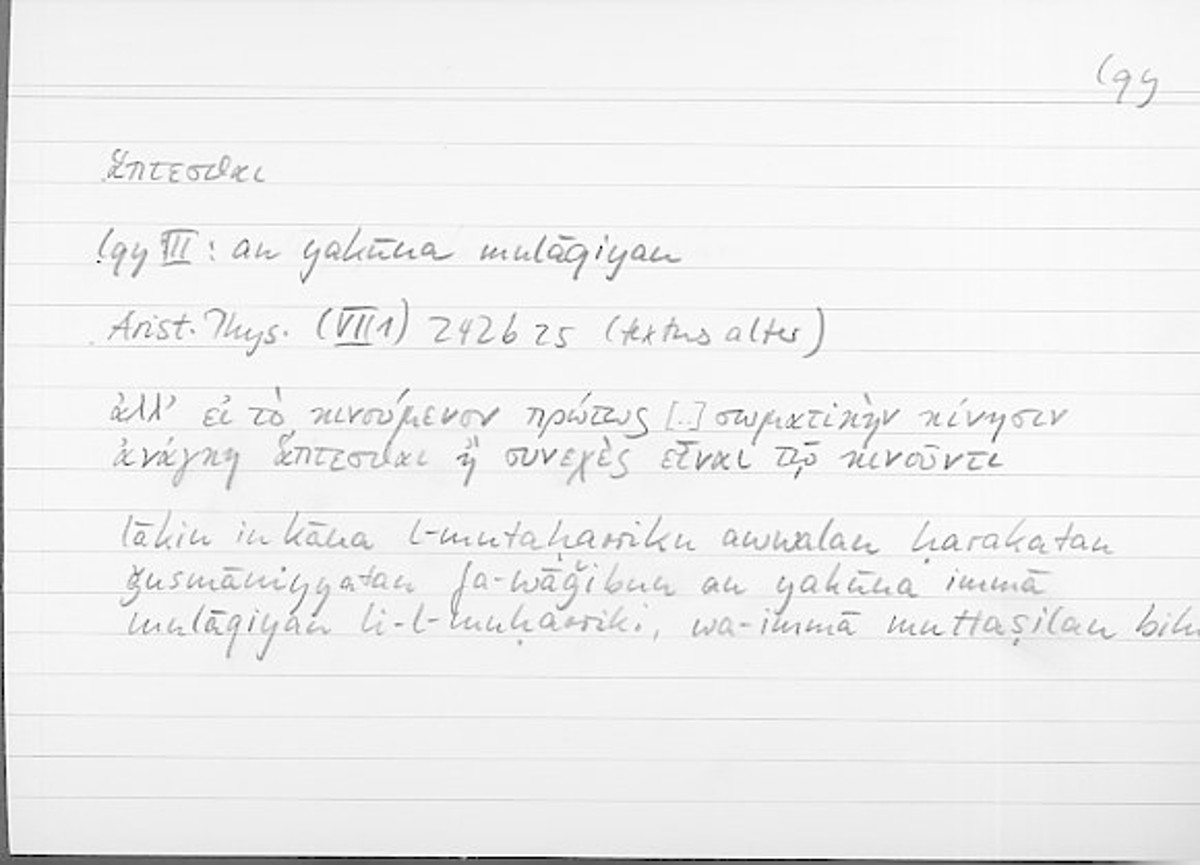 lqy
ἅπτεσθαι
lqy III : an yakūna mulāqiyan
Arist. Phys. (VII 1) 242b25 (textus alter)
ἀλλ’ εἰ τὸ κινούμενον πρώτως [..] σωματικὴν κίνησιν
ἀνάγκη ἅπτεσθαι ἢ συνεχὲς εἶναι τῷ κινοῦντι
lākin in kāna l-mutaḥarriku awwalan ḥarakatan
ǧusmāniyyatan fa-wāǧibun an yakūna immā
mulāqiyan li-l-muḥarriki, wa-immā muttaṣilan bihi